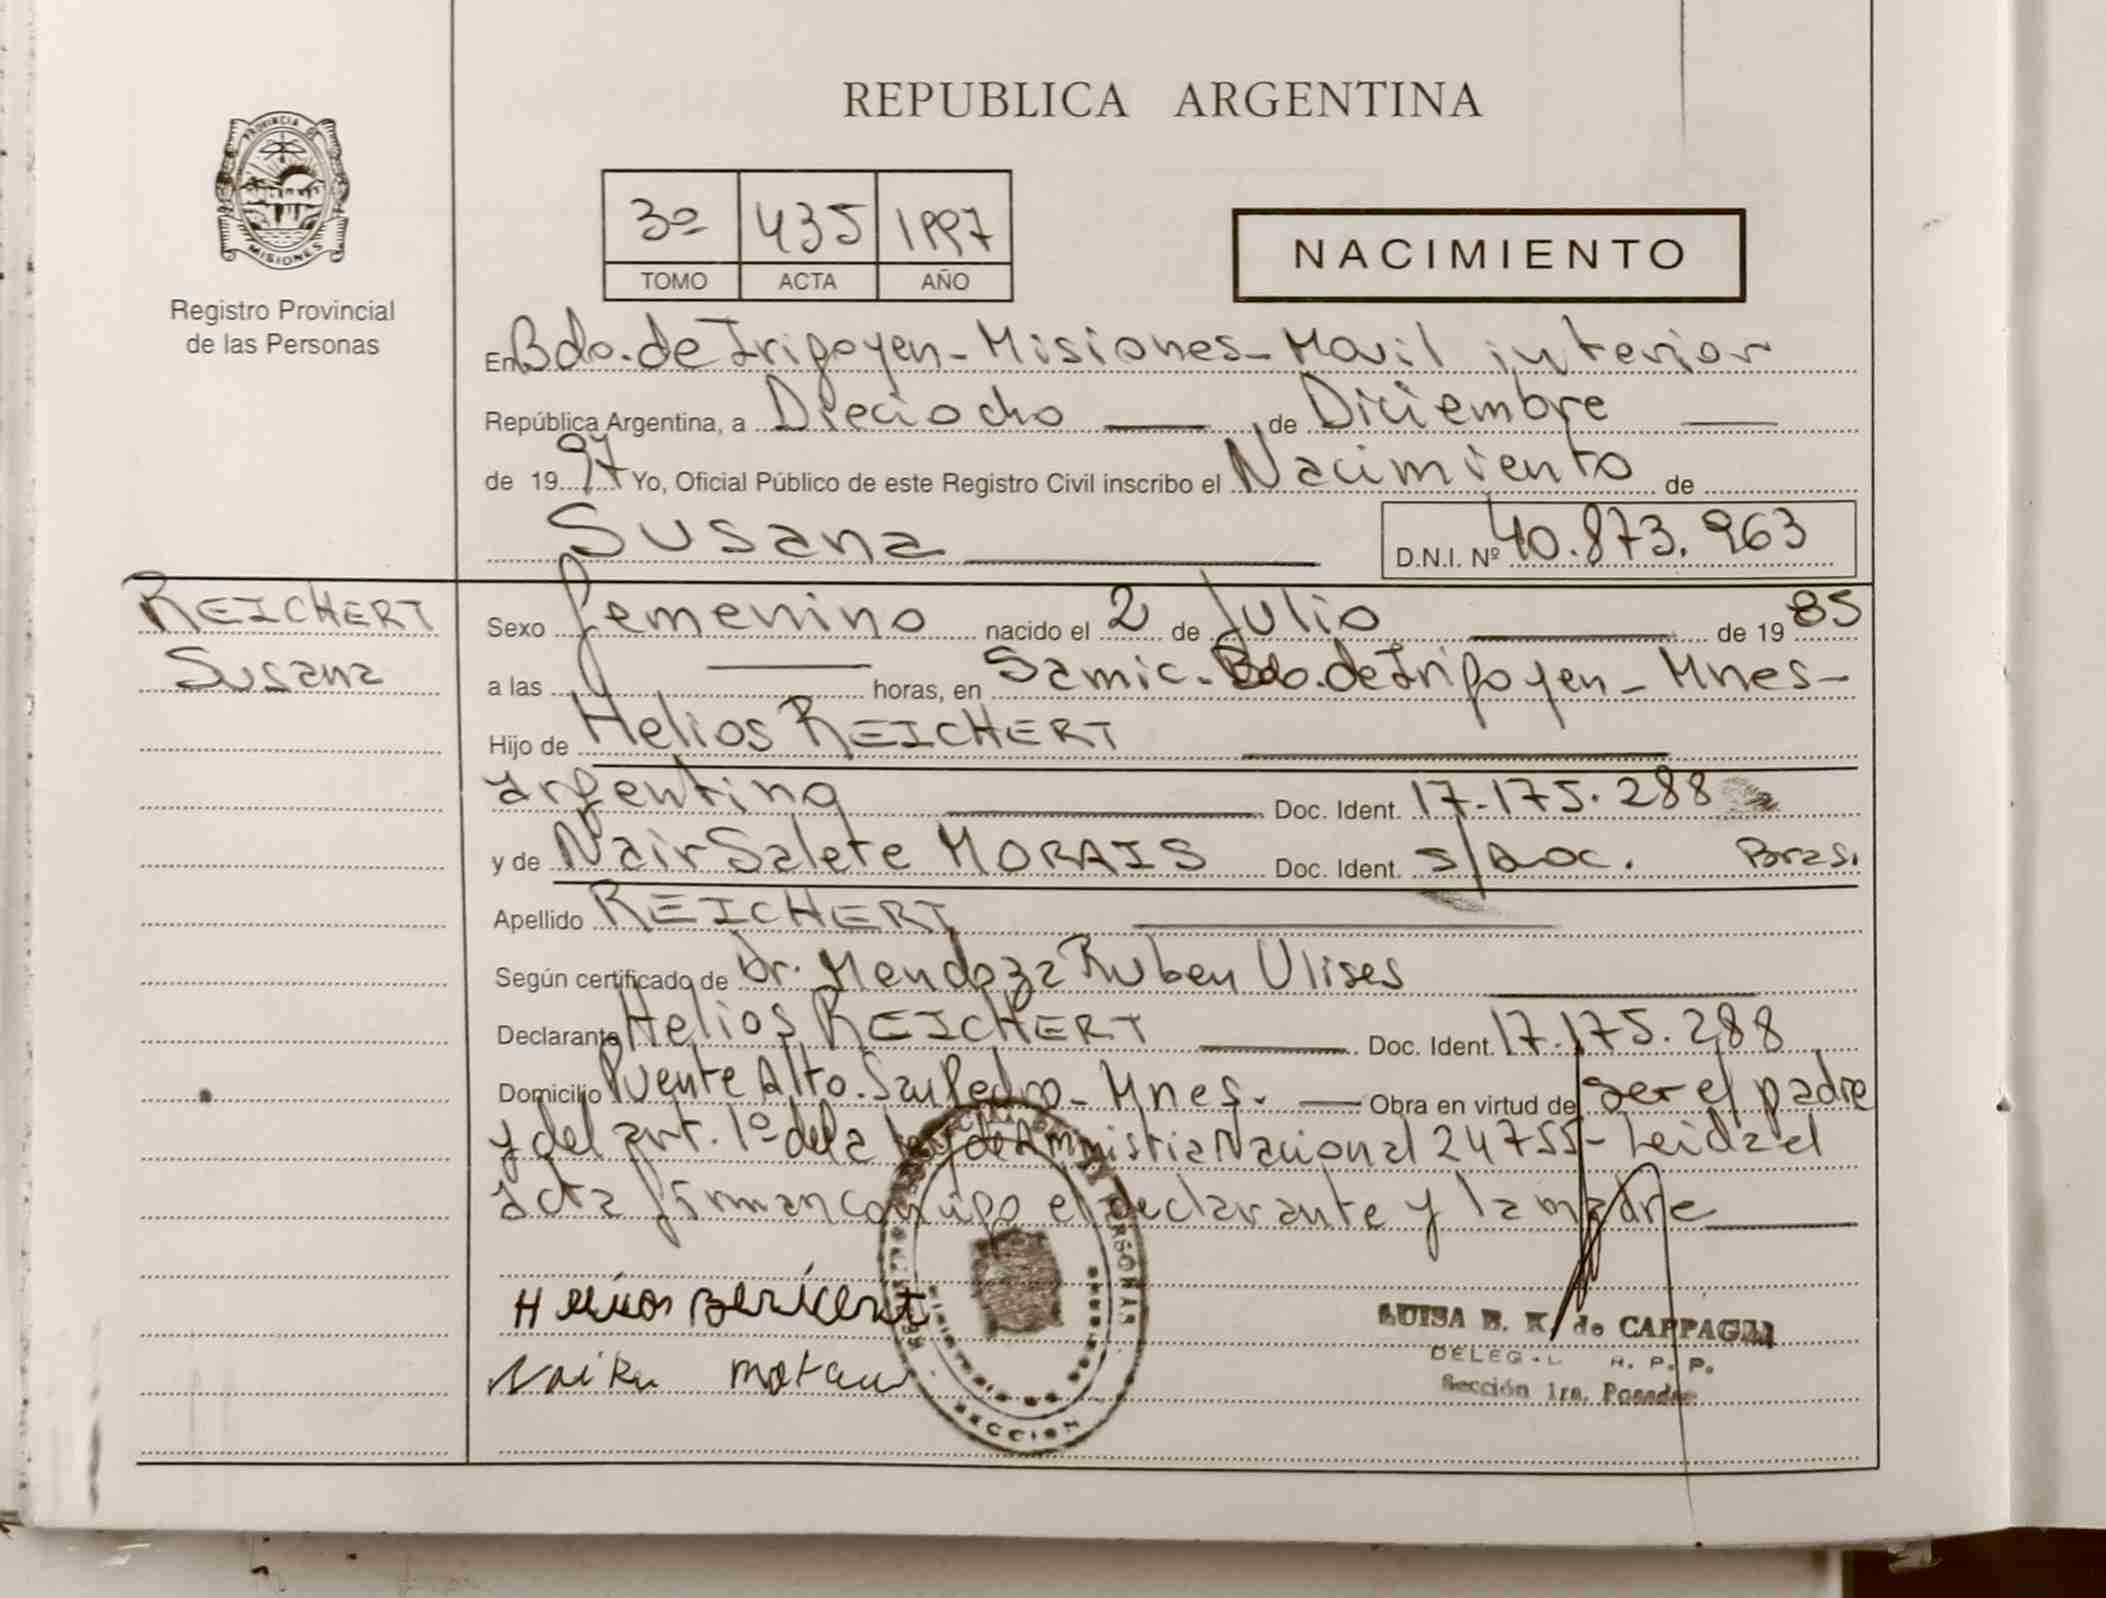 REPUBLICA ARGENTINA
PROVINCIA DE
MISIONES
Registro Provincial
de las Personas
3º 435 1997
TOMO ACTA AÑO
NACIMIENTO
En Bdo. de Irigoyen - Misiones - Movil interior
República Argentina, a Dieciocho de Diciembre
de 1997 Yo, Oficial Público de este Registro Civil inscribo el Nacimiento de
Susana D.N.I. Nº 40.873.963
REICHERT
Susana
Sexo femenino nacido el 2 de Julio de 1985
a las horas, en Samic. Bdo. de Irigoyen - Mnes -
Hijo de Helios REICHERT
argentino Doc. Ident. 17.175.288
y de Nair Salete MORAIS Doc. Ident. s/doc. Bras.
Apellido REICHERT
Según certificado de Dr. Mendoza Ruben Ulises
Declarante Helios REICHERT Doc. Ident. 17.175.288
Domicilio Puente Alto. San Pedro - Mnes. Obra en virtud de ser el padre
y del art. 1º de la ley de Amnistia Nacional 24755 - Leida el
acta firman conmigo el declarante y la madre
LUISA E. K. de CAPPAGLI
DELEG. R. P. P.
Sección 1ra. Posadas
SECCION